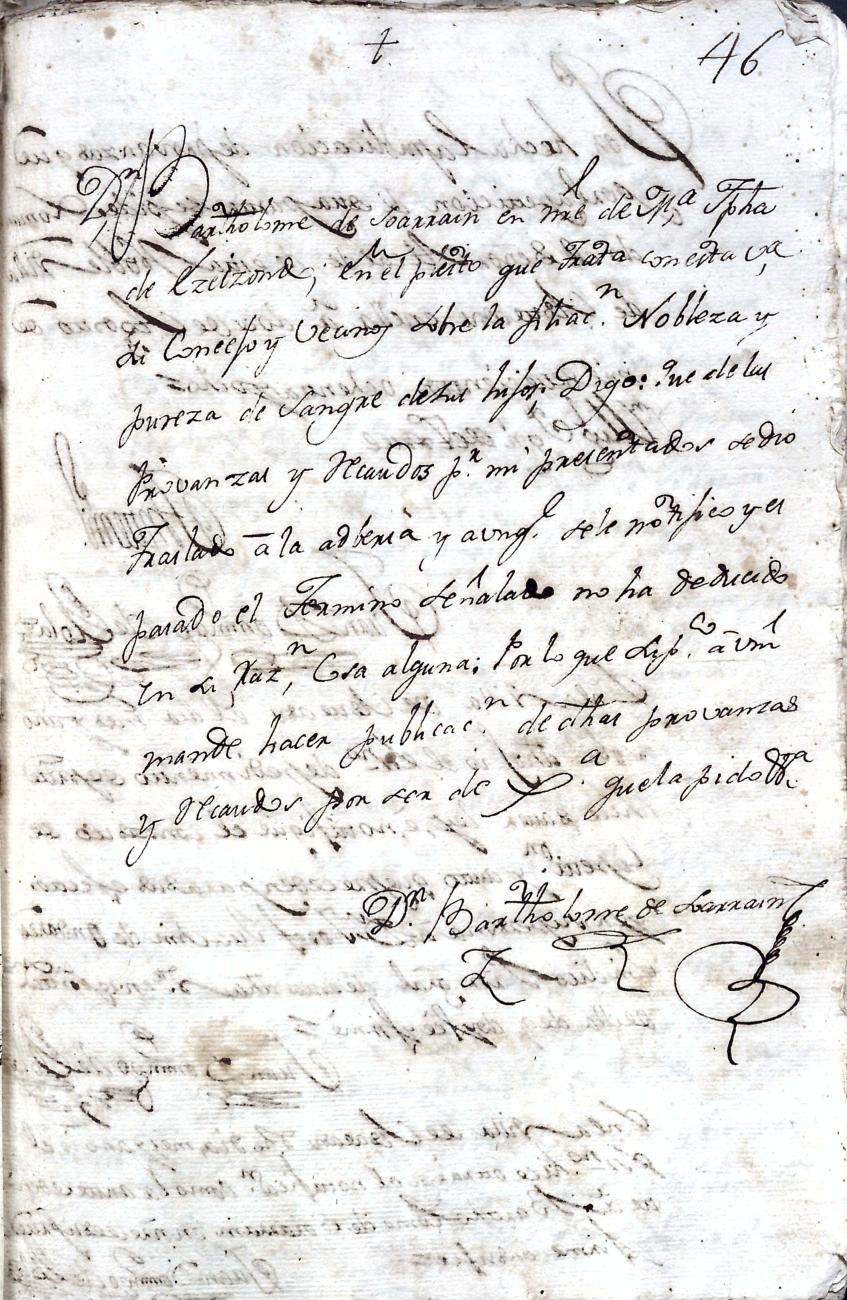 +
46
Dn Bartholome de Larrain en nre de Ma Jpha
de Ezeizond, en el pleito que trata con esta va
su Concejo y Vecinos sobre la filiacn. Nobleza y
pureza de Sangre de sus hijos; Digo: Que de las
Provanzas y Recaudos pr. mi presentados se dio
traslado â la adbersa y aunq. se le notifico y es
pasado el Termino señalado no ha deducido
en su Razn, Cosa alguna; Por lo que supco. â vm
mande hacer publicacn. de dhas provanzas
y Recaudos por ser de Ja. que la pido &a
Dn. Bartholome de Larrain